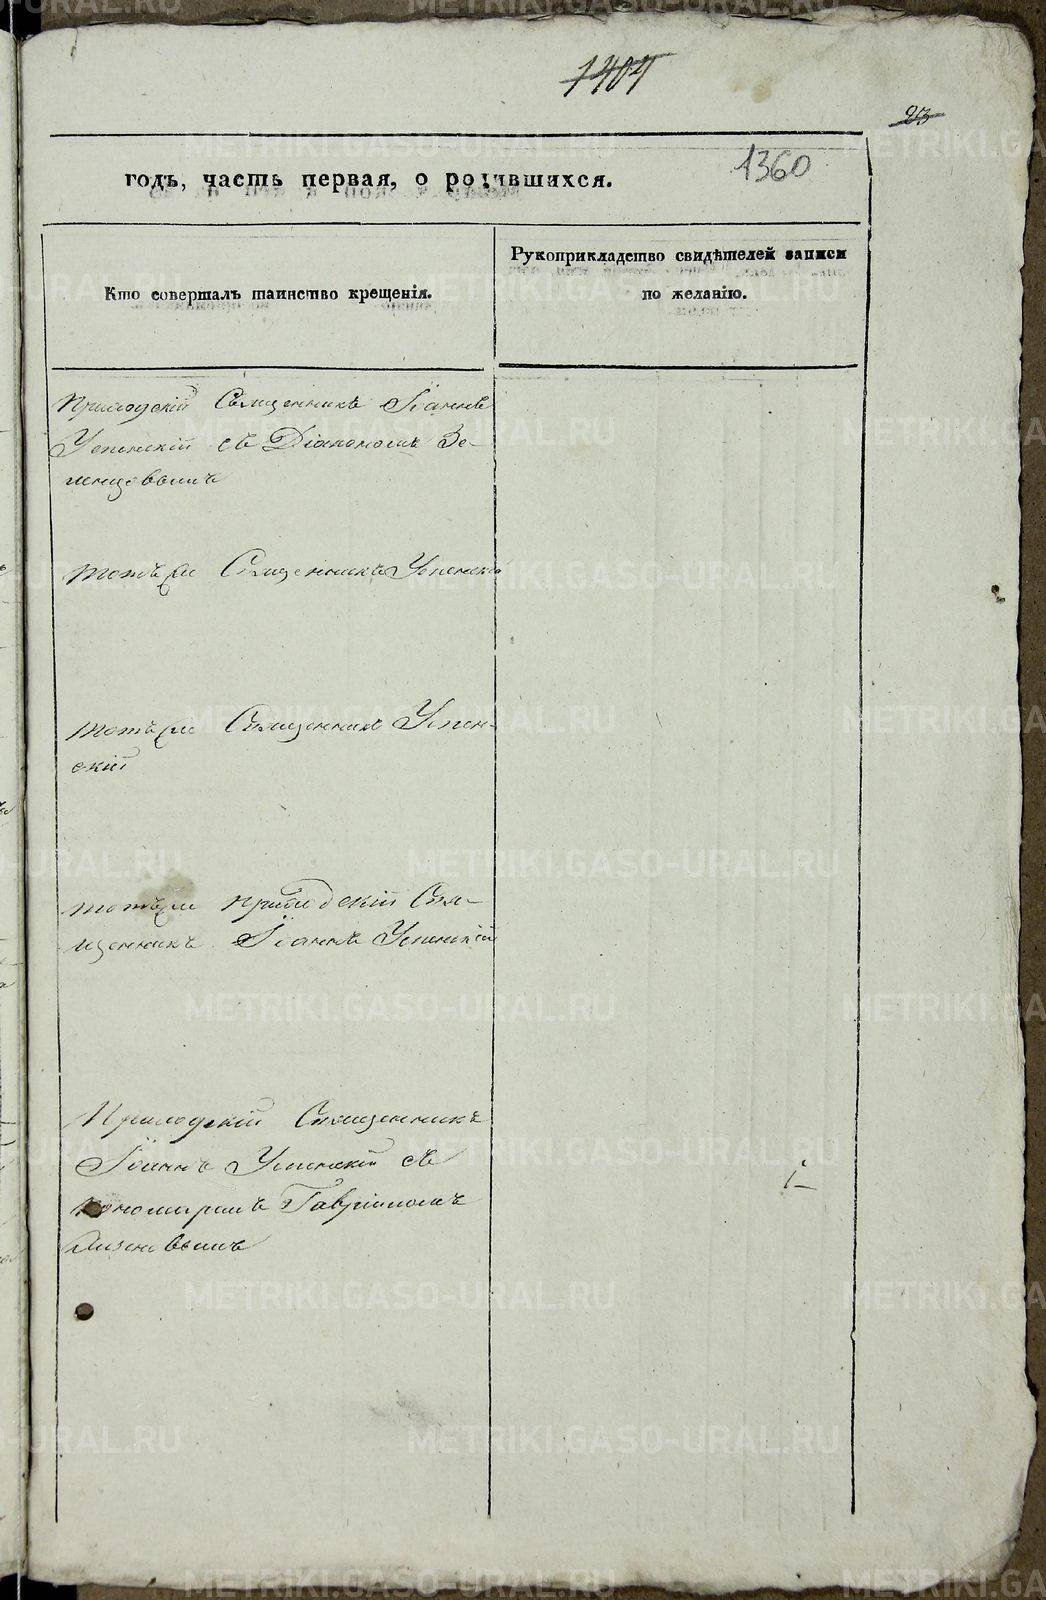 1404
23
1360
годъ, часть первая, о родившихся.
Кто совершалъ таинство крещенія.
Рукоприкладство свидѣтелей записи
по желанію.
Приходскій Священникъ Іоаннъ
Успенскій съ Діакономъ Зе-
менцовымъ
тотъ же Священникъ Успенскій
тотъ же Священникъ Успен-
скій
тотъ же приходскій Свя-
щенникъ Іоаннъ Успенскій
Приходскій Священникъ
Іоаннъ Успенскій съ
пономаремъ Гавріиломъ
METRIKI.GASO-URAL.RU